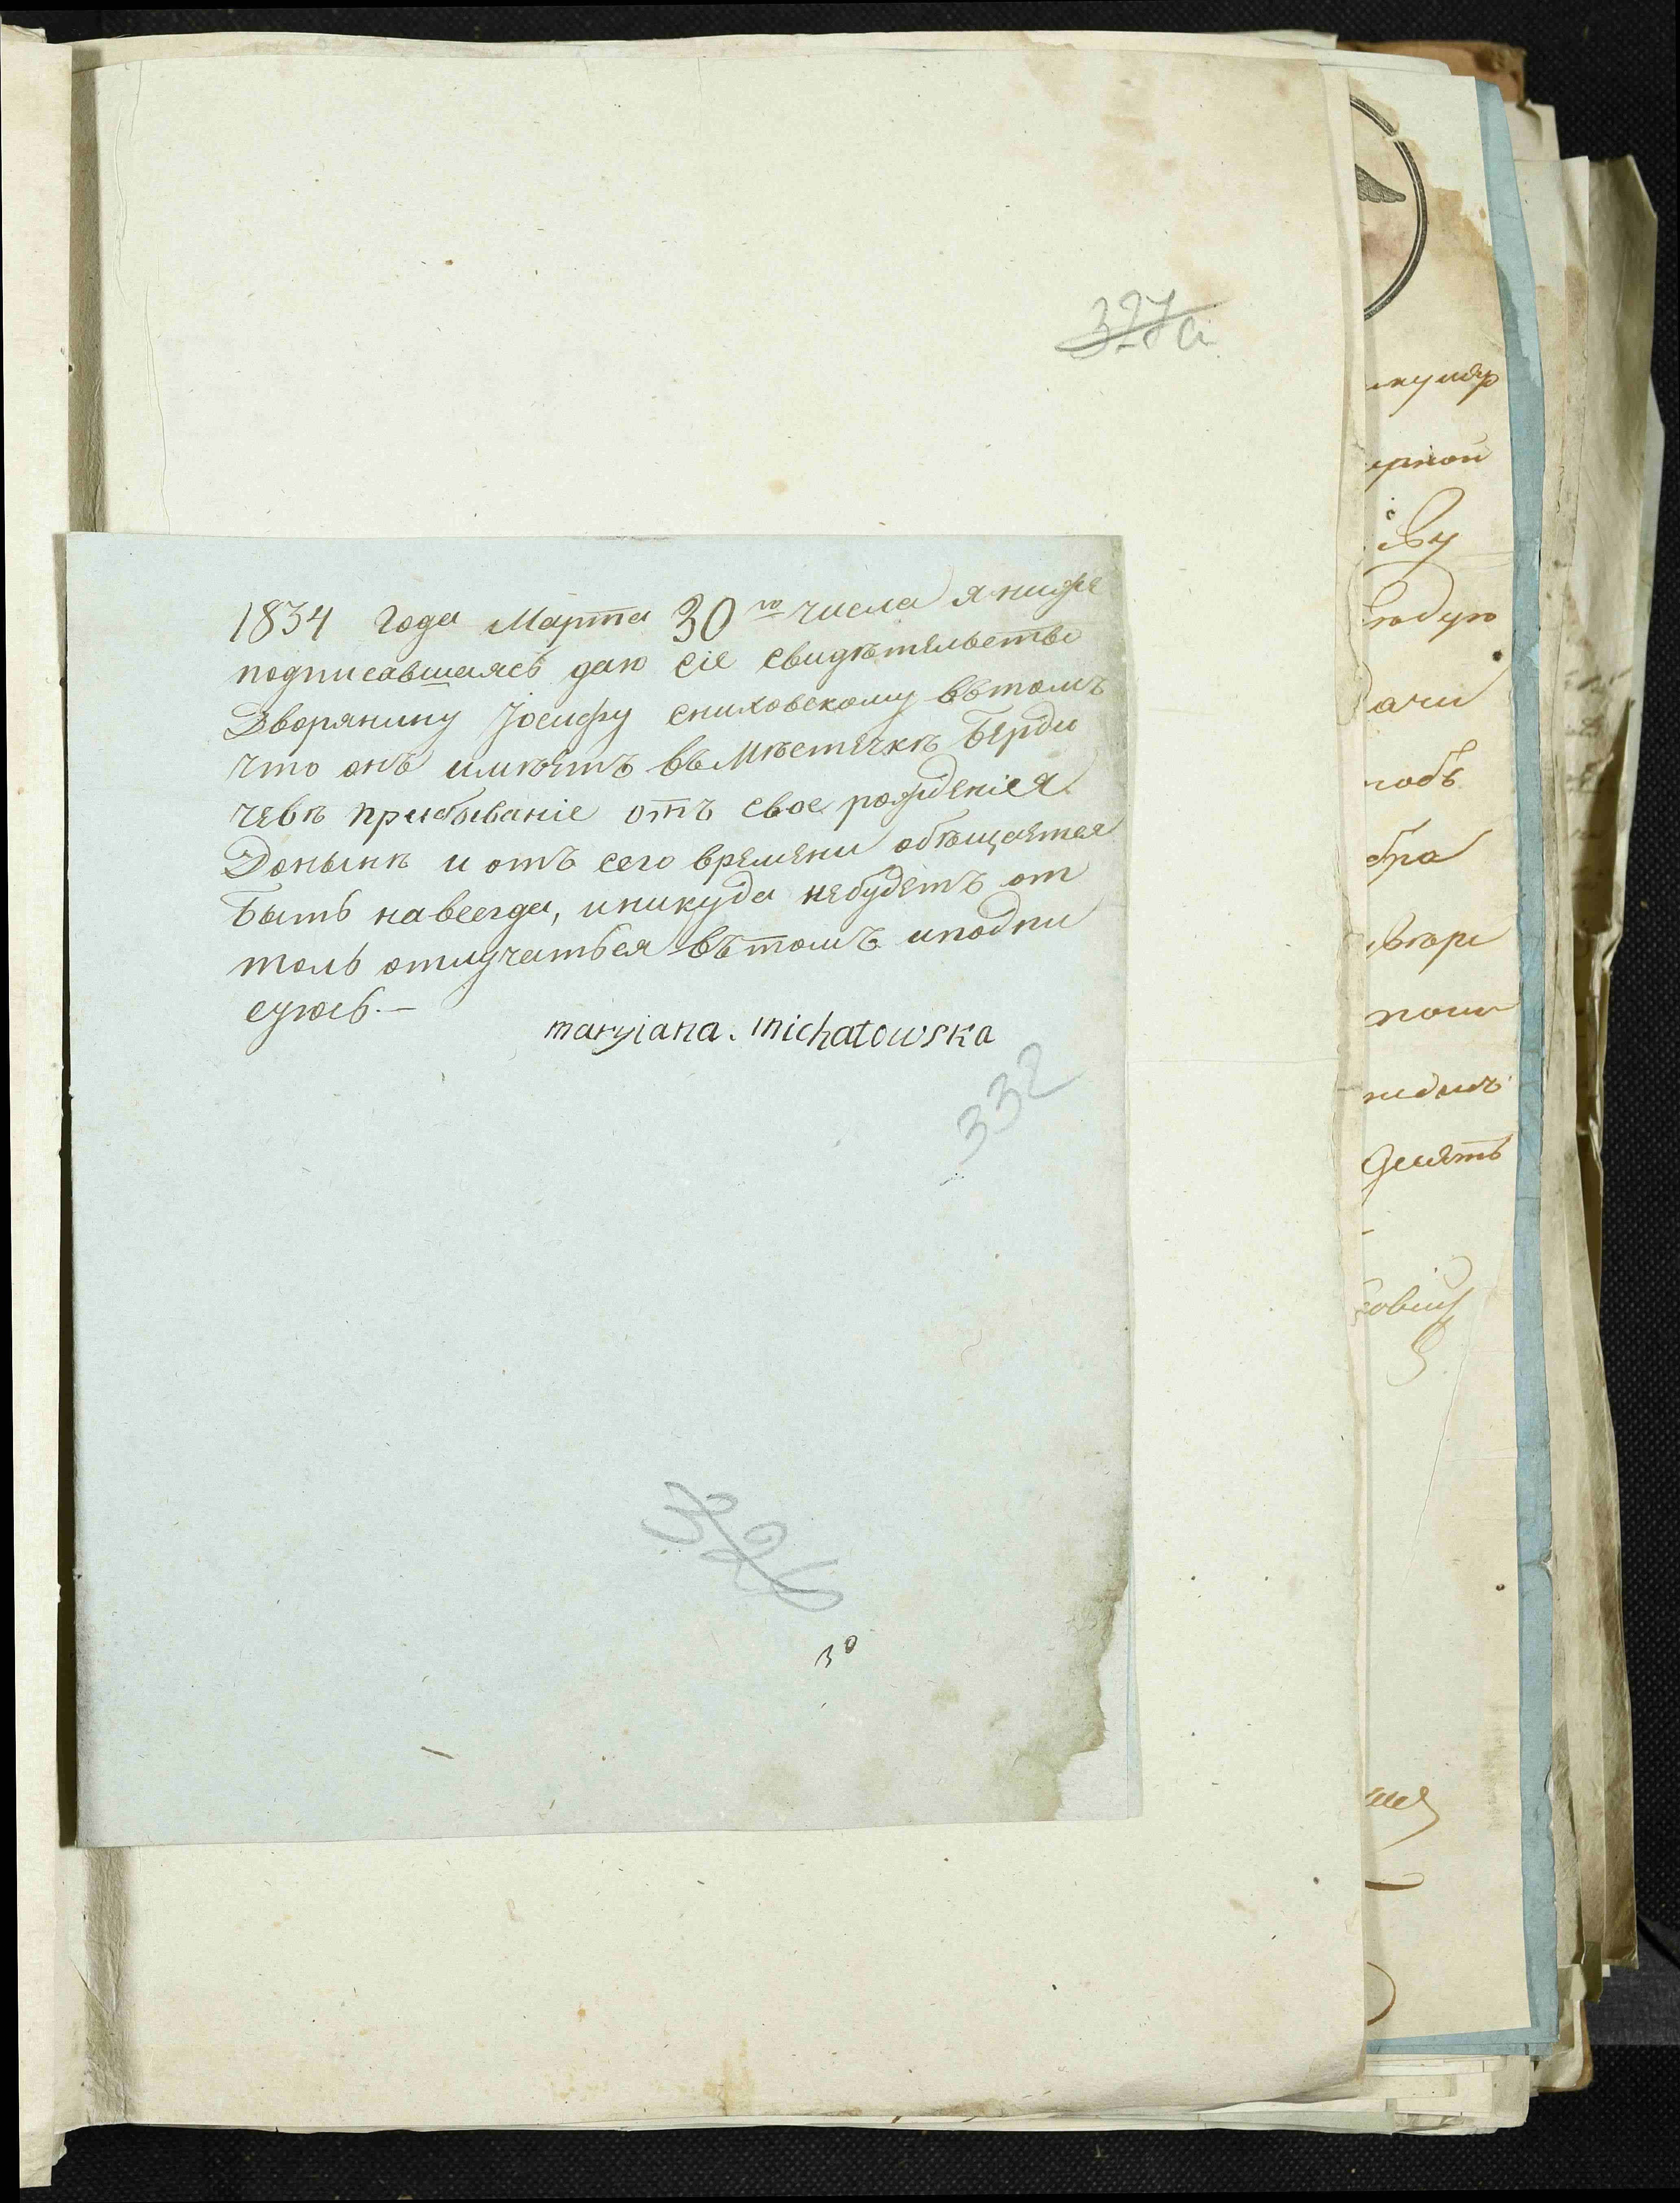 327 а
1834 Года Марта 30го числа я ниже
подписавшаясь даю сіе свидѣтельство
Дворянину Іосифу Сниховскому вътомъ
что онъ имѣетъ въ Мѣстечкѣ Берди
чевѣ прибываніе отъ свое рожденіея
Донынѣ и отъ сего времени обѣщается
Быть навсегда, иникуда небудетъ от
толь отлучаться вътомъ иподпи
суюсь.—
maryiana. michatowska
332
326
30